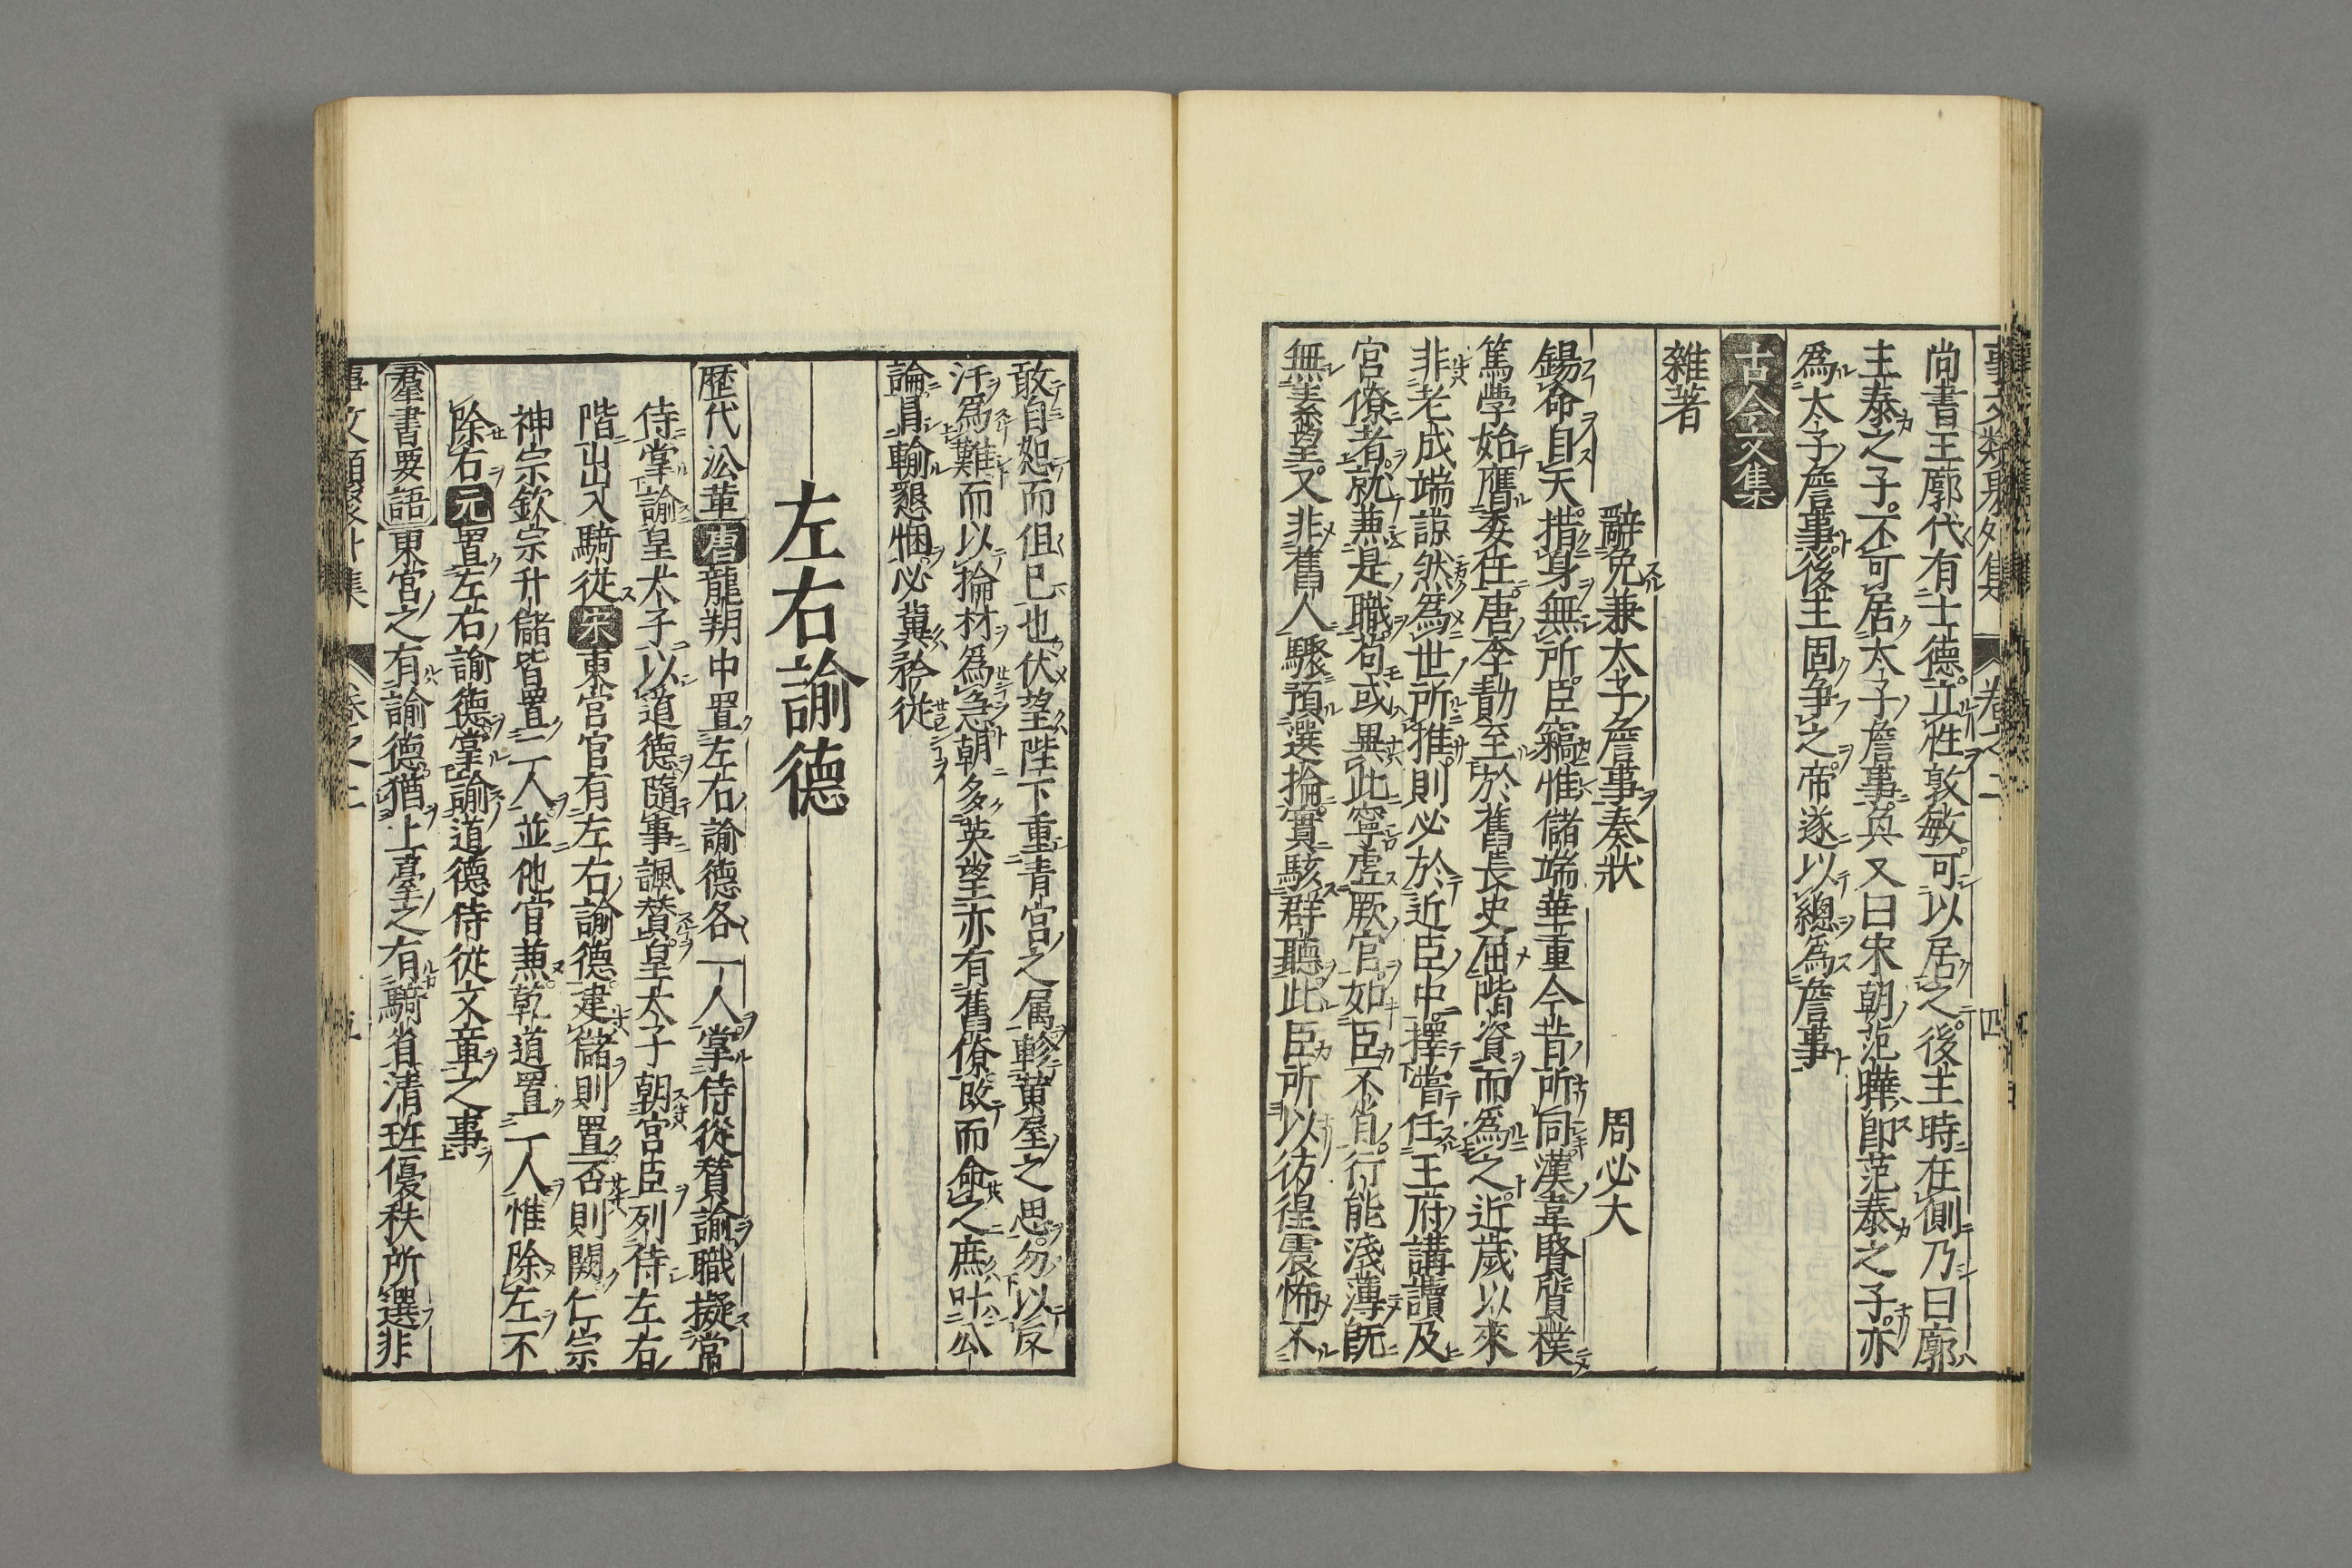 事文類聚外集 卷之二 四
尚書王廓代有士德立性敦敏可以居之後主時在側乃曰廓
王泰之子不可居太子詹事奐又曰宋朝范曄即范泰之子亦
爲太子詹事後主固争之帝遂以總爲詹事
古今文集
雜著
辭免兼太子詹事奏狀 周必大
錫命自天措身無所臣竊惟儲端華重今昔所同漢韋賢質樸
篤學始膺委任唐李勣至於舊長史屈階資而爲之近歲以來
非老成端諒然爲世所推則必於近臣中擇嘗任王府講讀及
宮僚者就兼是職苟或異此寧虗厥官如臣不肖行能淺薄旣
無素望又非舊人驟預選掄實駭群聽此臣所以彷徨震怖不
敢自恕而但已也伏望陛下重青宮之属軫黄屋之思勿以反
汗爲難而以掄材爲急朝多英望亦有舊僚改而命之庶叶公
論具輸懇悃必冀矜從
左右諭德
歷代沿革唐龍朔中置左右諭德各一人掌侍從賛諭職擬常
侍掌諭皇太子以道德隨事諷賛皇太子朝宮臣列侍左右
階出入騎從宋東宮官有左右諭德建儲則置否則闕仁宗
神宗欽宗升儲皆置二人並他官兼乾道置一人惟除左不
除右元置左右諭德掌諭道德侍從文章之事
羣書要語東宮之有諭德猶上臺之有騎省清班優秩所選非
事文類聚外集 卷之二 五